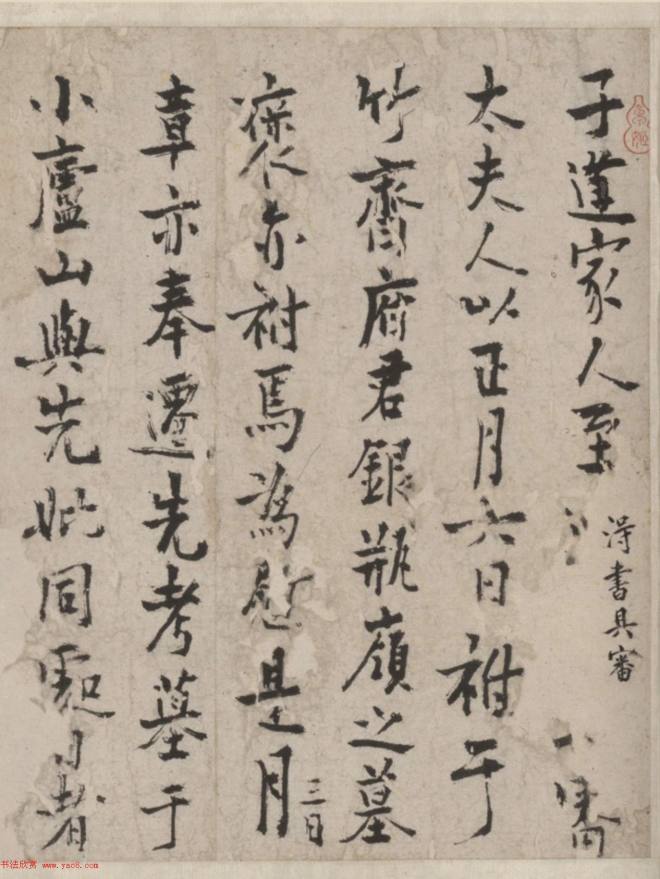 子家人至
得書具審
太夫人以正月六日祔于
竹齋府君銀瓶嶺之墓
亦祔焉為慰是月三日
章亦奉遷先考墓于
小廬山與先妣同處
书法欣赏 www.yac8.com